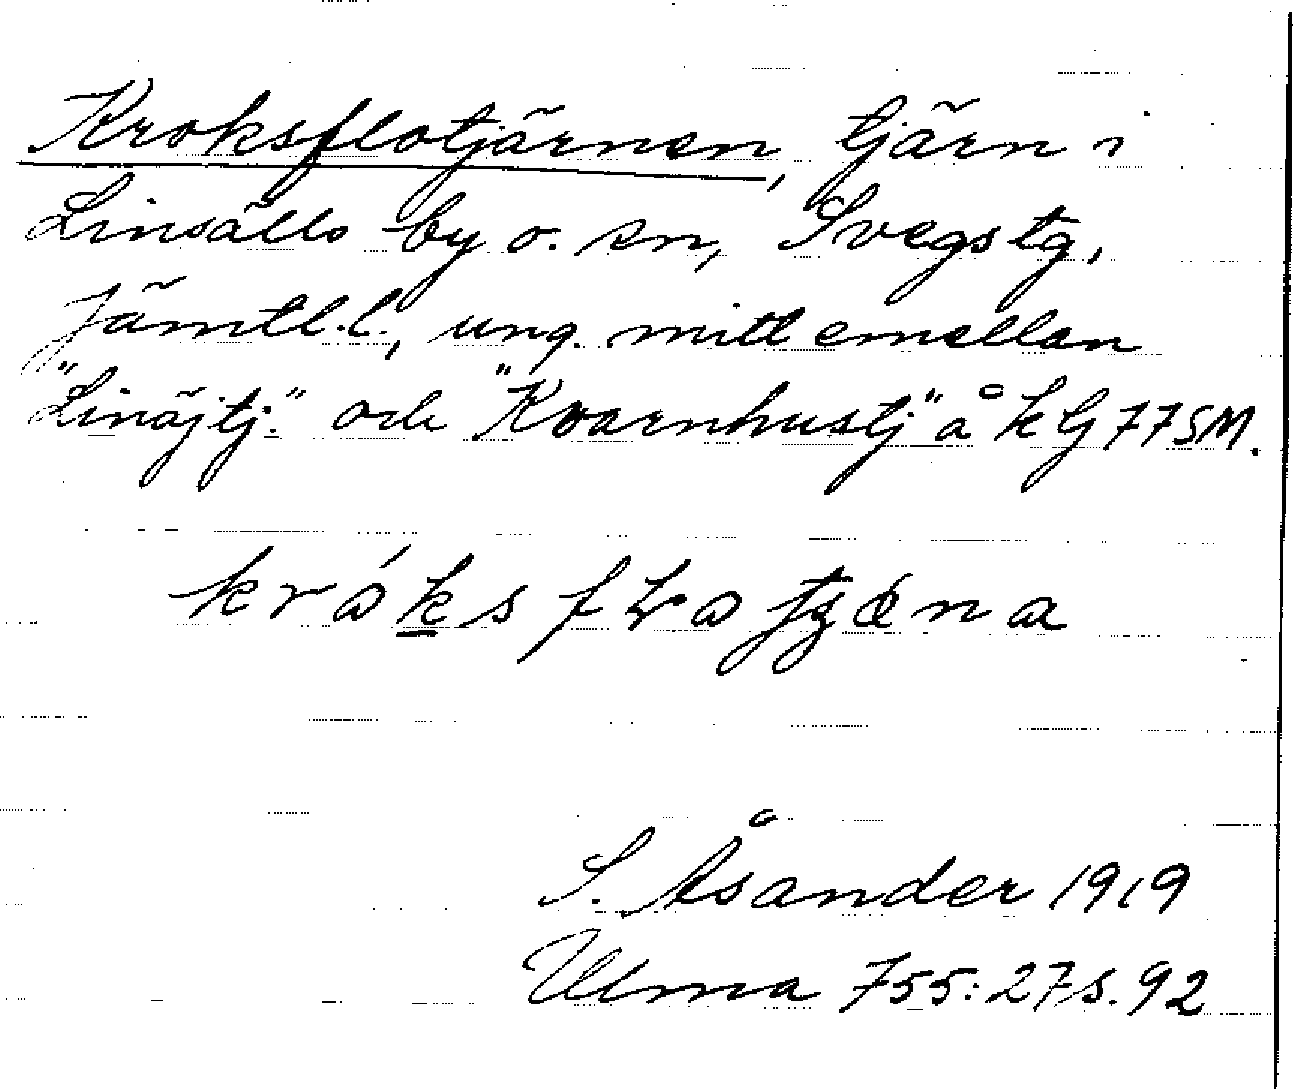 Kroksflotjärnen, tjärn i
Linsälls by o. sn, Svegs tg,
Jämtl. l., ung. mitt emellan
"Linäjtj." och "Kvarnhustj" å kG 77SM.
S. Åsander 1919
Ulma 755:27 s. 92